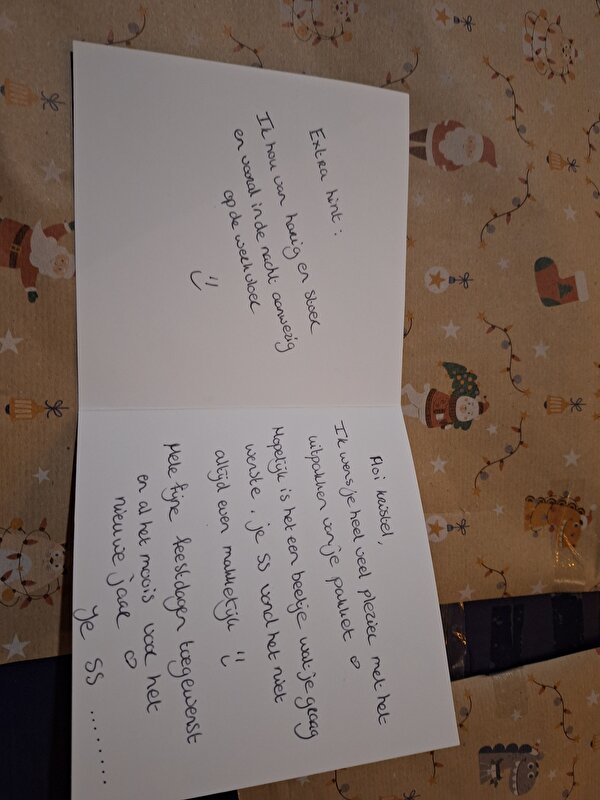 Extra hint:
Ik hou van harig en stoer
en vooral in de nacht aanwezig
op de werkvloer
:)
Hoi kristel,
Ik wens je heel veel plezier met het
uitpakken van je pakket ♡
Hopelijk is het een beetje wat je graag
wenste, je SS vond het niet
altijd even makkelijk :)
Hele fijne feestdagen toegewenst
en al het moois voor het
nieuwe jaar ♡
Je SS ..........